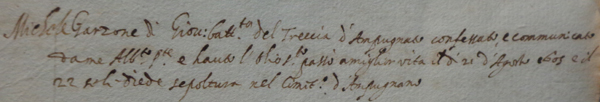 Michele Garzone di Giov: batt.ta del Treccia d'Anpugnano confessato, e communicato
da me Alb.to p.te e hauto l'olio s.to passò a miglior vita li di 21 d'Agosto 1605 e il
22 se li diede sepoltura nel Cimit.o d'Anpugnano